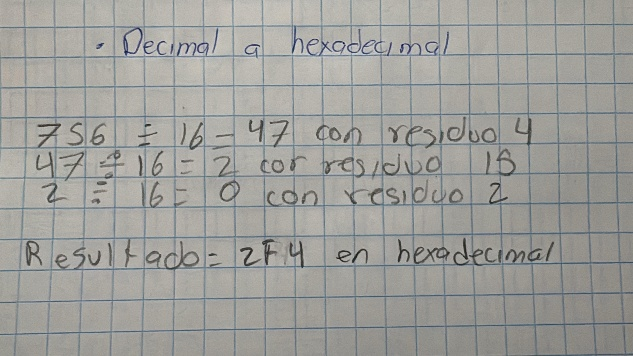 • Decimal a hexadecimal
756 ÷ 16 = 47 con residuo 4
47 ÷ 16 = 2 con residuo 15
2 ÷ 16 = 0 con residuo 2
Resultado = 2F4 en hexadecimal